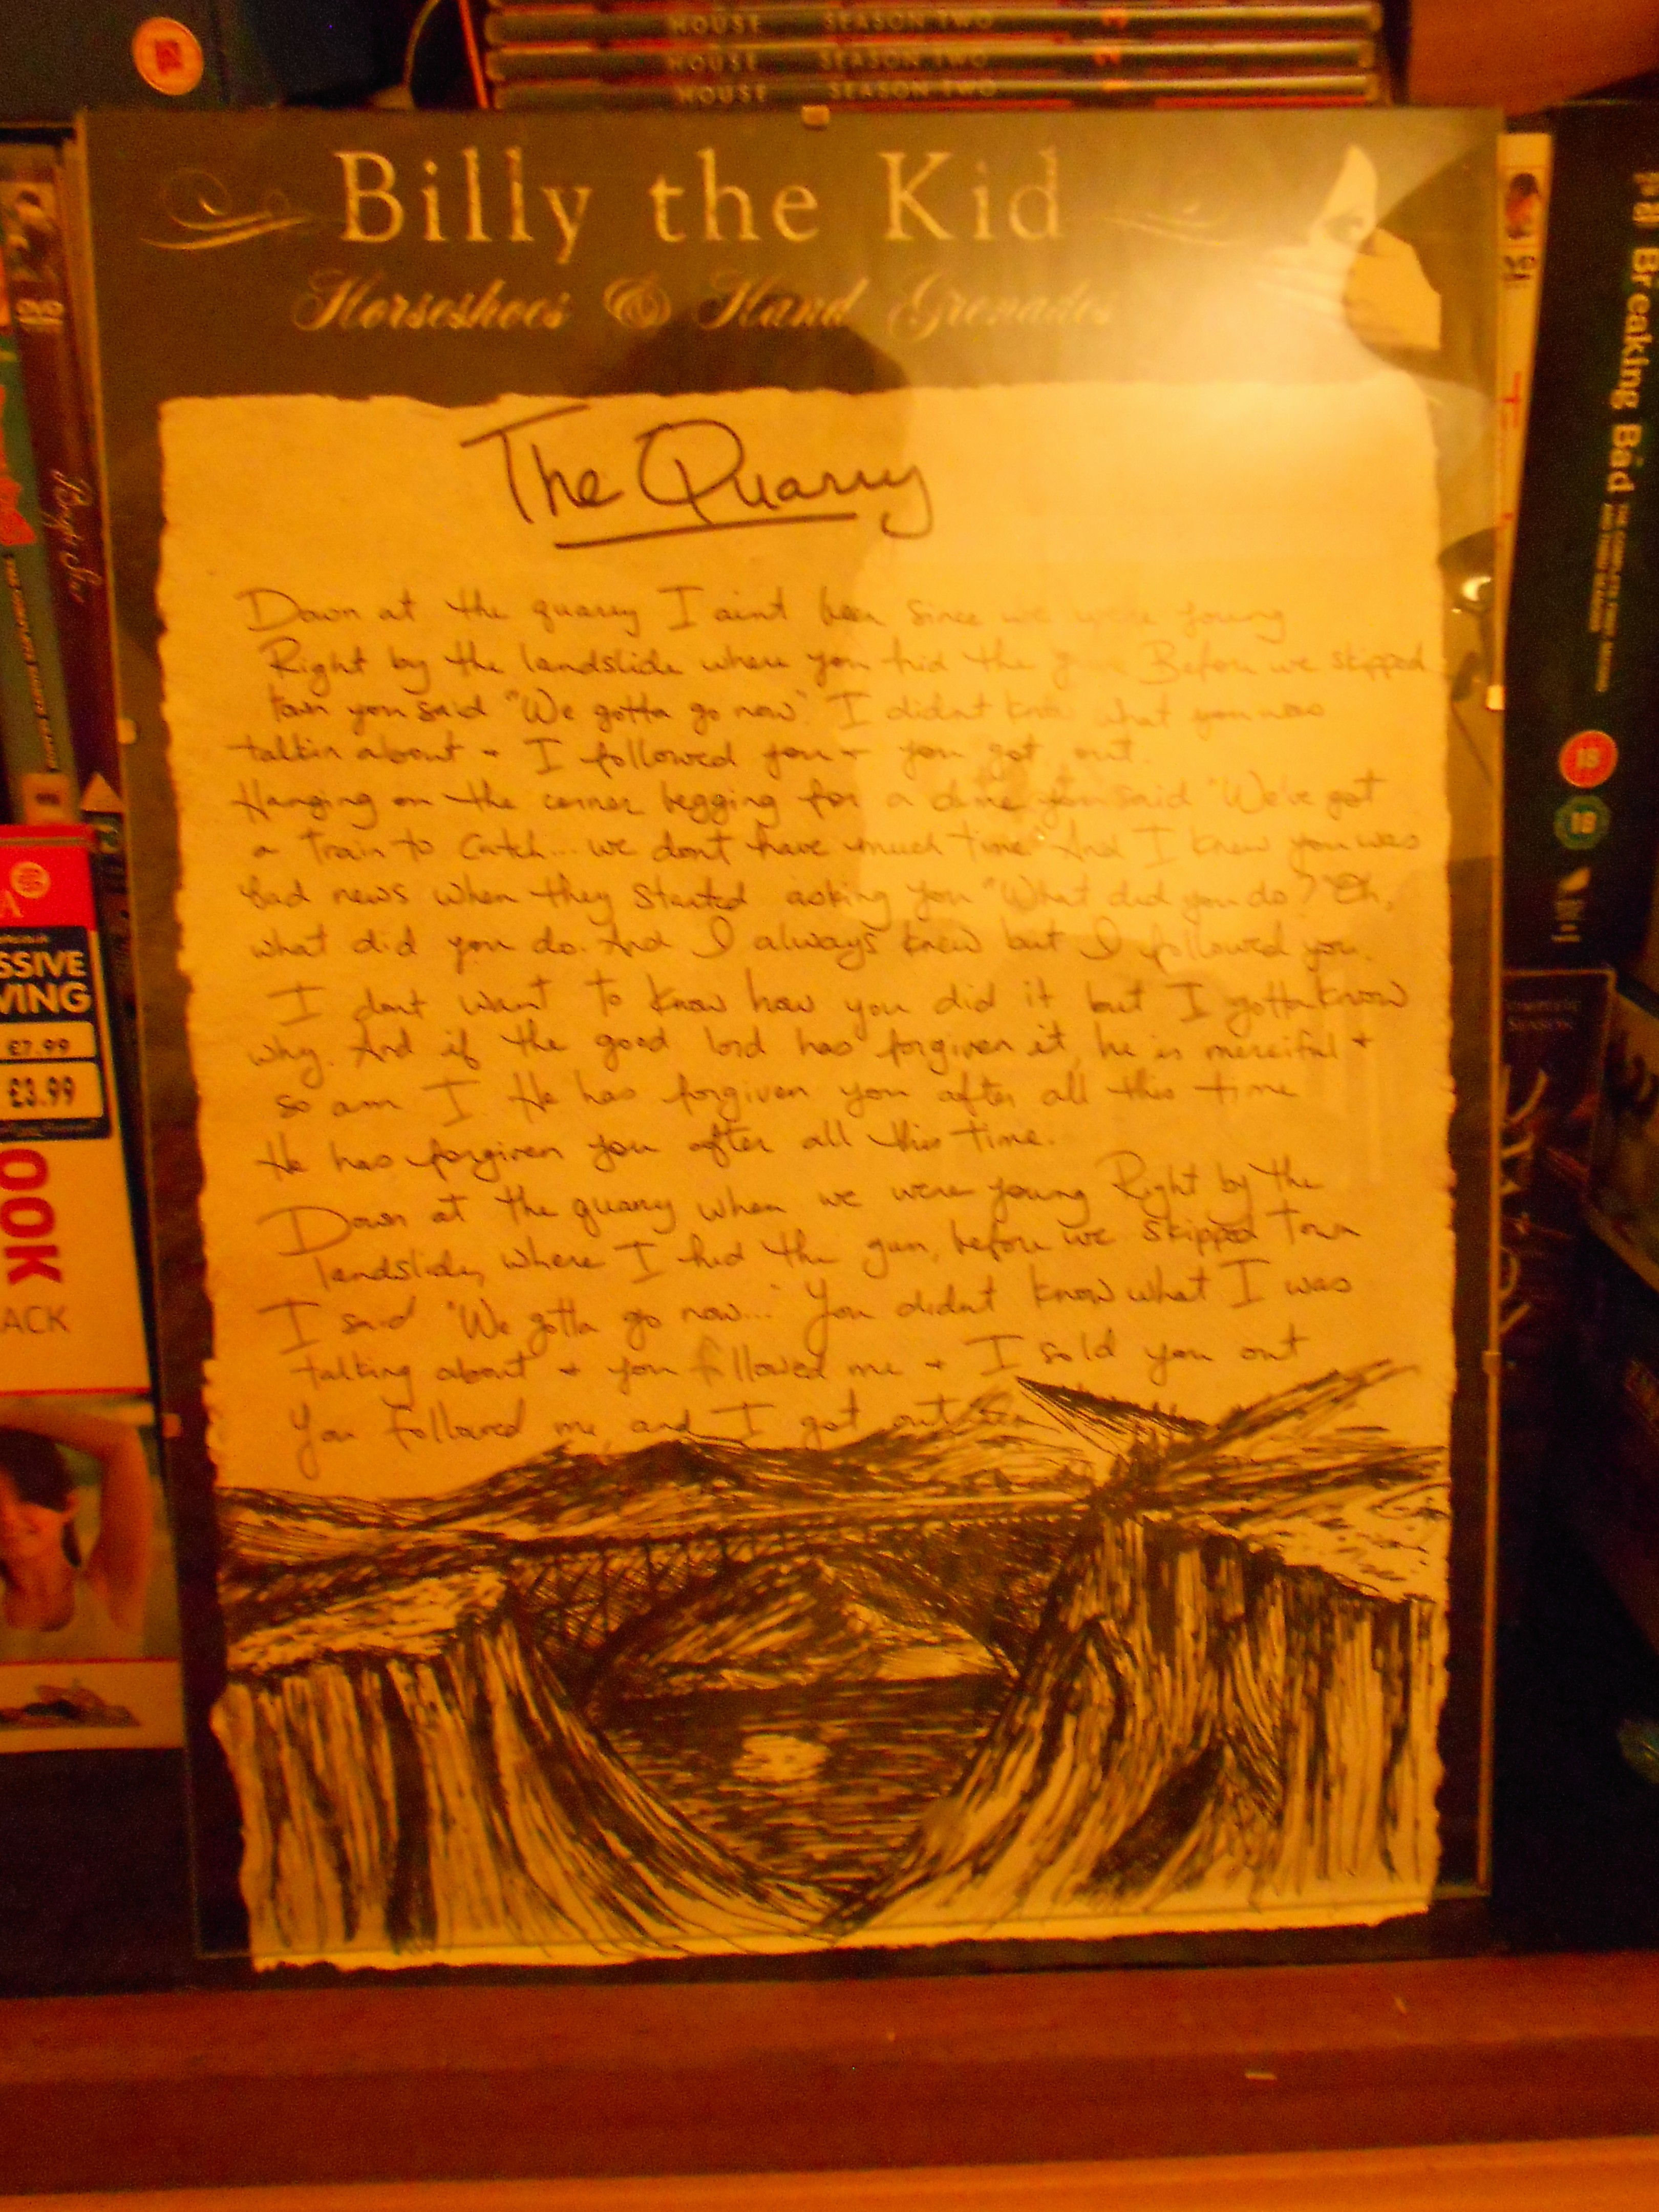 HOUSE SEASON TWO 2
HOUSE SEASON TWO 2
HOUSE SEASON TWO
Billy the Kid
Horseshoes & Hand Grenades
The Quarry
Down at the quarry I aint been since we were young
Right by the landslide where you hid the Before we skipped
town you said "We gotta go now" I didnt know what you was
talkin about + I followed you + you got out.
Hanging on the corner begging for a dime you said "We've got
a train to catch... we dont have much time" And I knew you was
bad news when they started asking you "What did you do?" Oh,
what did you do. And I always knew but I followed you.
I dont want to know how you did it but I gotta know
why. And if the good lord has forgiven it, he is merciful +
so am I. He has forgiven you after all this time
He has forgiven you after all this time.
Down at the quarry when we were young Right by the
landslide, where I hid the gun, before we skipped town
I said "We gotta go now..." You didnt know what I was
talking about + you followed me + I sold you out
You followed me, and I got out
DVD
SSIVE
VING
£7.99
£3.99
OOK
ACK
DVD
Breaking Bad
18
18
COMPLETE
SEASON